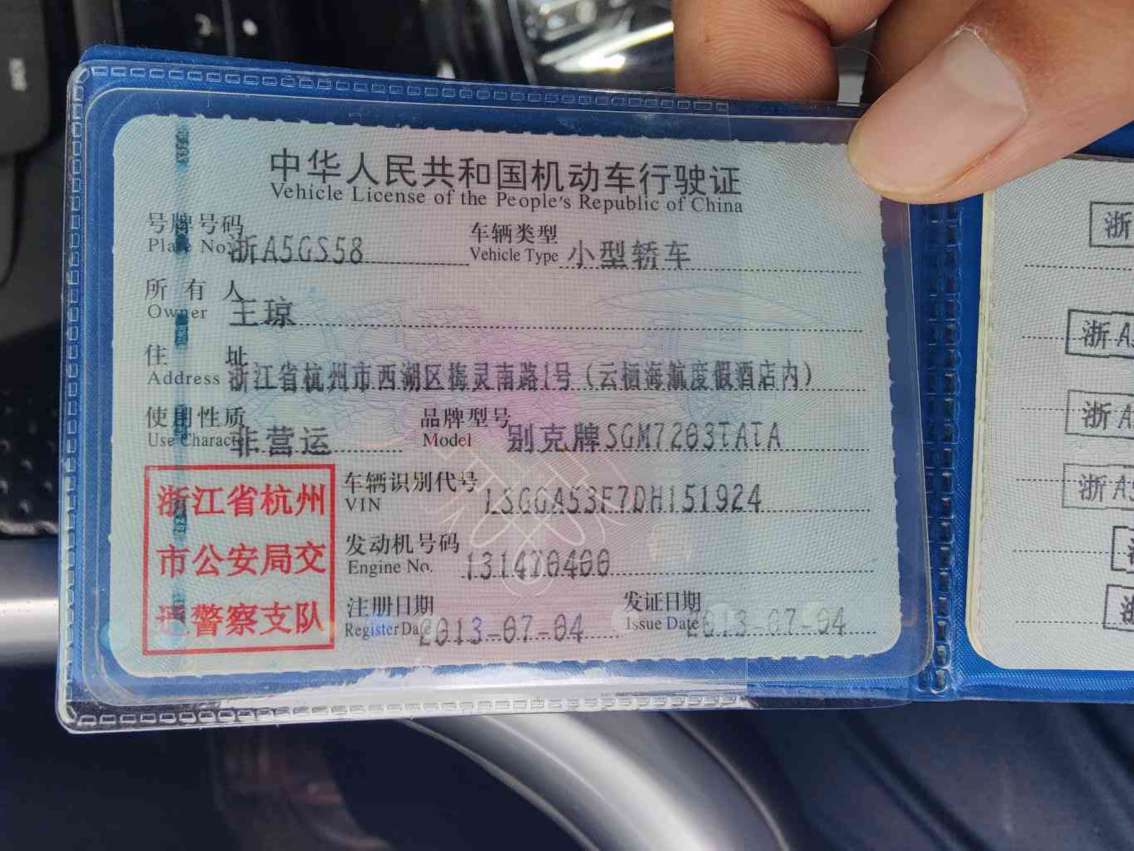 中华人民共和国机动车行驶证
Vehicle License of the People's Republic of China
号牌号码 浙A5GS58 车辆类型 小型轿车
Plate No. Vehicle Type
所有人 王琼
Owner
住址 浙江省杭州市西湖区梅灵南路1号（云栖海航度假酒店内）
Address
使用性质 非营运 品牌型号 别克牌SGM7203TATA
Use Character Model
浙江省杭州
市公安局交
通警察支队
车辆识别代号 LSGGA53F7DH151924
VIN
发动机号码 131470400
Engine No.
注册日期 2013-07-04 发证日期 2013-07-04
Register Date Issue Date
浙
浙A
浙A
浙A5